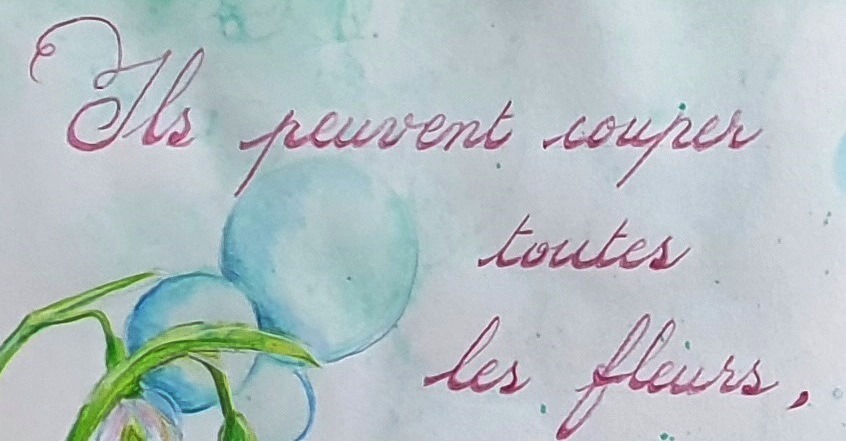 Ils peuvent couper
toutes
les fleurs,